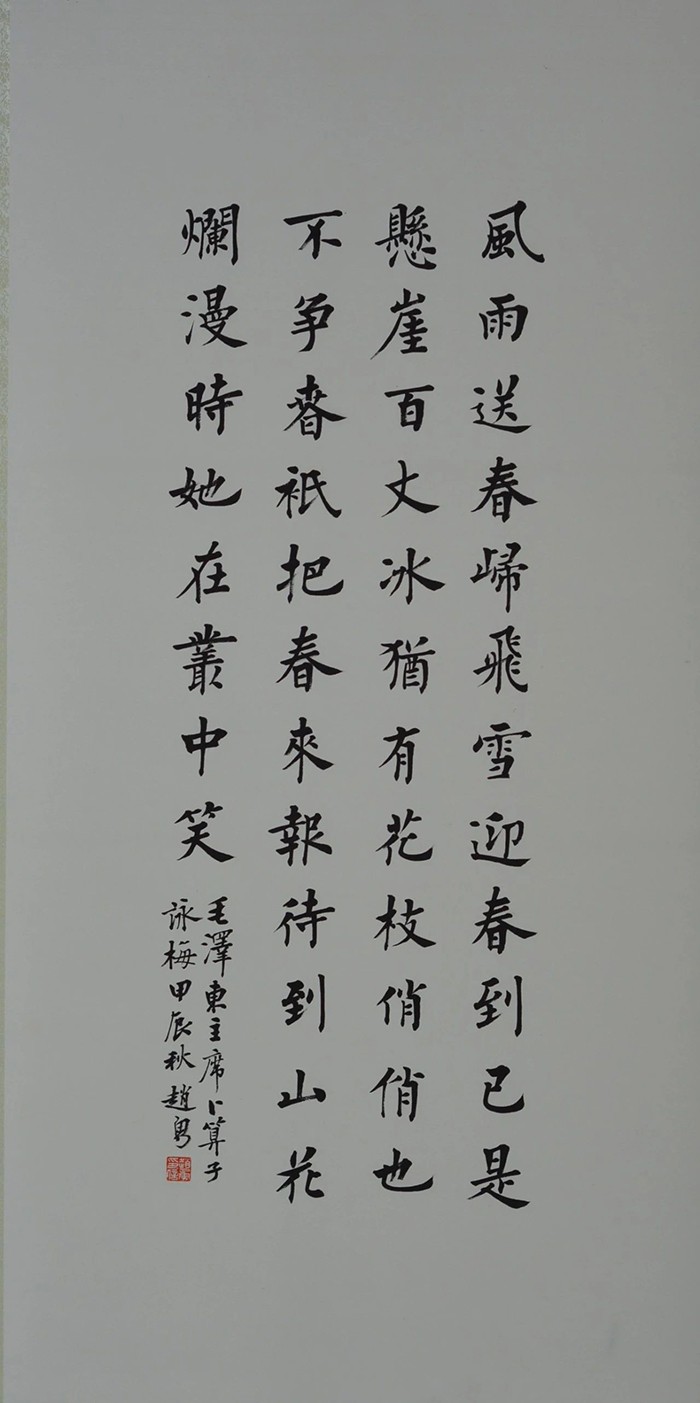 風雨送春歸飛雪迎春到已是
懸崖百丈冰猶有花枝俏俏也
不争春衹把春來報待到山花
爛漫時她在叢中笑
毛澤東主席卜算子
詠梅甲辰秋趙粤